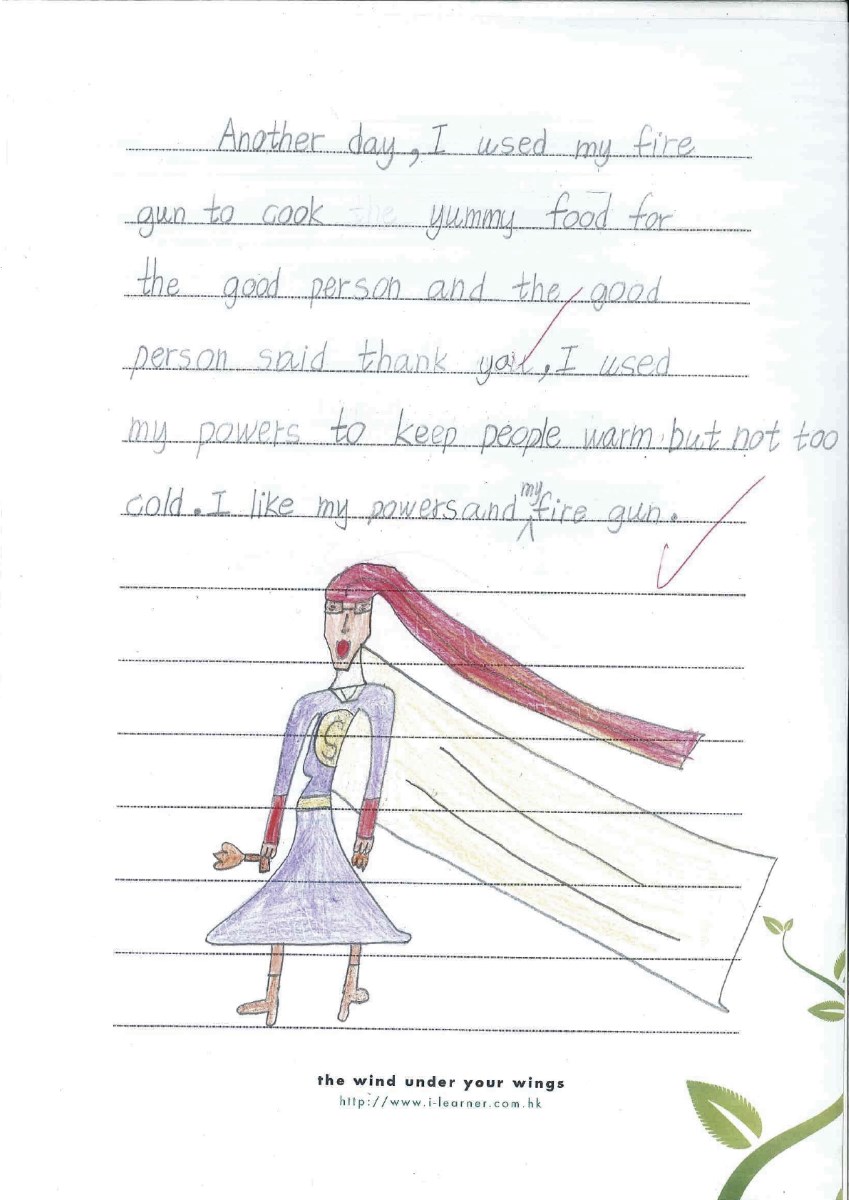 Another day, I used my fire
gun to cook the yummy food for
the good person and the good
person said thank you, I used
my powers to keep people warm but not too
cold. I like my powers and my fire gun.
S
the wind under your wings
http://www.i-learner.com.hk